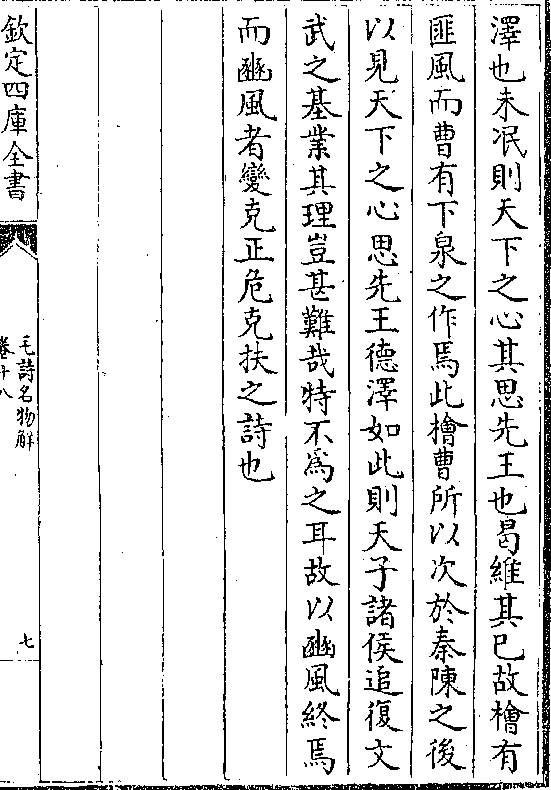 澤也未泯則天下之心其思先王也曷維其已故檜有
匪風而曹有下泉之作焉此檜曹所以次於秦陳之後
以見天下之心思先王德澤如此則天子諸侯追復文
武之基業其理豈甚難哉特不為之耳故以豳風終焉
而豳風者變克正危克扶之詩也
欽定四庫全書
毛詩名物解
卷十八
七